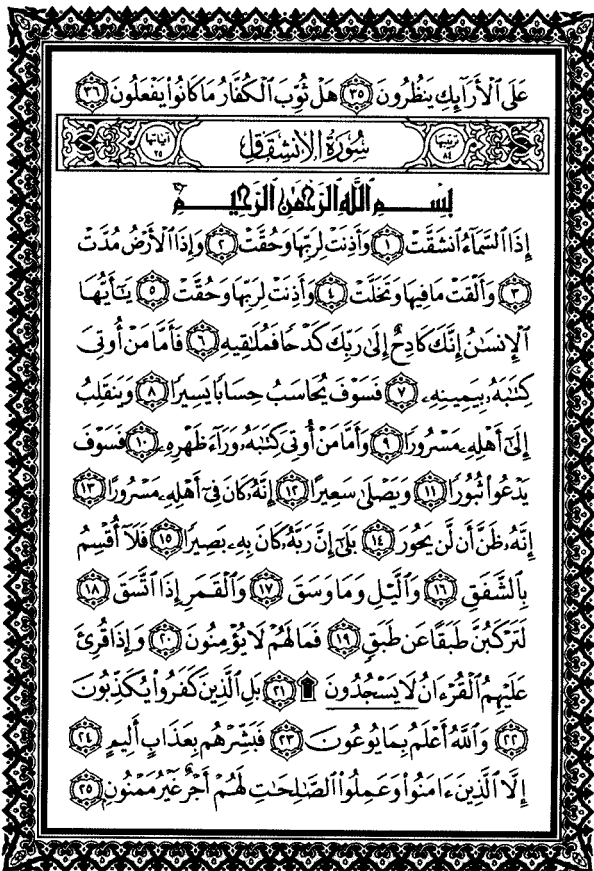 عَلَى ٱلْأَرَآئِكِ يَنظُرُونَ ٣٥ هَلْ ثُوِّبَ ٱلْكُفَّارُ مَا كَانُوا۟ يَفْعَلُونَ ٣٦
ترتيبها ٨٤ سُورَةُ الِانشِقَاقِ آياتها ٢٥
بِسْمِ ٱللَّهِ ٱلرَّحْمَٰنِ ٱلرَّحِيمِ
إِذَا ٱلسَّمَآءُ ٱنشَقَّتْ ١ وَأَذِنَتْ لِرَبِّهَا وَحُقَّتْ ٢ وَإِذَا ٱلْأَرْضُ مُدَّتْ
٣ وَأَلْقَتْ مَا فِيهَا وَتَخَلَّتْ ٤ وَأَذِنَتْ لِرَبِّهَا وَحُقَّتْ ٥ يَٰٓأَيُّهَا
ٱلْإِنسَٰنُ إِنَّكَ كَادِحٌ إِلَىٰ رَبِّكَ كَدْحًا فَمُلَٰقِيهِ ٦ فَأَمَّا مَنْ أُوتِىَ
كِتَٰبَهُۥ بِيَمِينِهِۦ ٧ فَسَوْفَ يُحَاسَبُ حِسَابًا يَسِيرًا ٨ وَيَنقَلِبُ
إِلَىٰٓ أَهْلِهِۦ مَسْرُورًا ٩ وَأَمَّا مَنْ أُوتِىَ كِتَٰبَهُۥ وَرَآءَ ظَهْرِهِۦ ١٠ فَسَوْفَ
يَدْعُوا۟ ثُبُورًا ١١ وَيَصْلَىٰ سَعِيرًا ١٢ إِنَّهُۥ كَانَ فِىٓ أَهْلِهِۦ مَسْرُورًا ١٣
إِنَّهُۥ ظَنَّ أَن لَّن يَحُورَ ١٤ بَلَىٰٓ إِنَّ رَبَّهُۥ كَانَ بِهِۦ بَصِيرًا ١٥ فَلَآ أُقْسِمُ
بِٱلشَّفَقِ ١٦ وَٱلَّيْلِ وَمَا وَسَقَ ١٧ وَٱلْقَمَرِ إِذَا ٱتَّسَقَ ١٨
لَتَرْكَبُنَّ طَبَقًا عَن طَبَقٍ ١٩ فَمَا لَهُمْ لَا يُؤْمِنُونَ ٢٠ وَإِذَا قُرِئَ
عَلَيْهِمُ ٱلْقُرْءَانُ لَا يَسْجُدُونَ ۩ ٢١ بَلِ ٱلَّذِينَ كَفَرُوا۟ يُكَذِّبُونَ
٢٢ وَٱللَّهُ أَعْلَمُ بِمَا يُوعُونَ ٢٣ فَبَشِّرْهُم بِعَذَابٍ أَلِيمٍ ٢٤
إِلَّا ٱلَّذِينَ ءَامَنُوا۟ وَعَمِلُوا۟ ٱلصَّٰلِحَٰتِ لَهُمْ أَجْرٌ غَيْرُ مَمْنُونٍۭ ٢٥